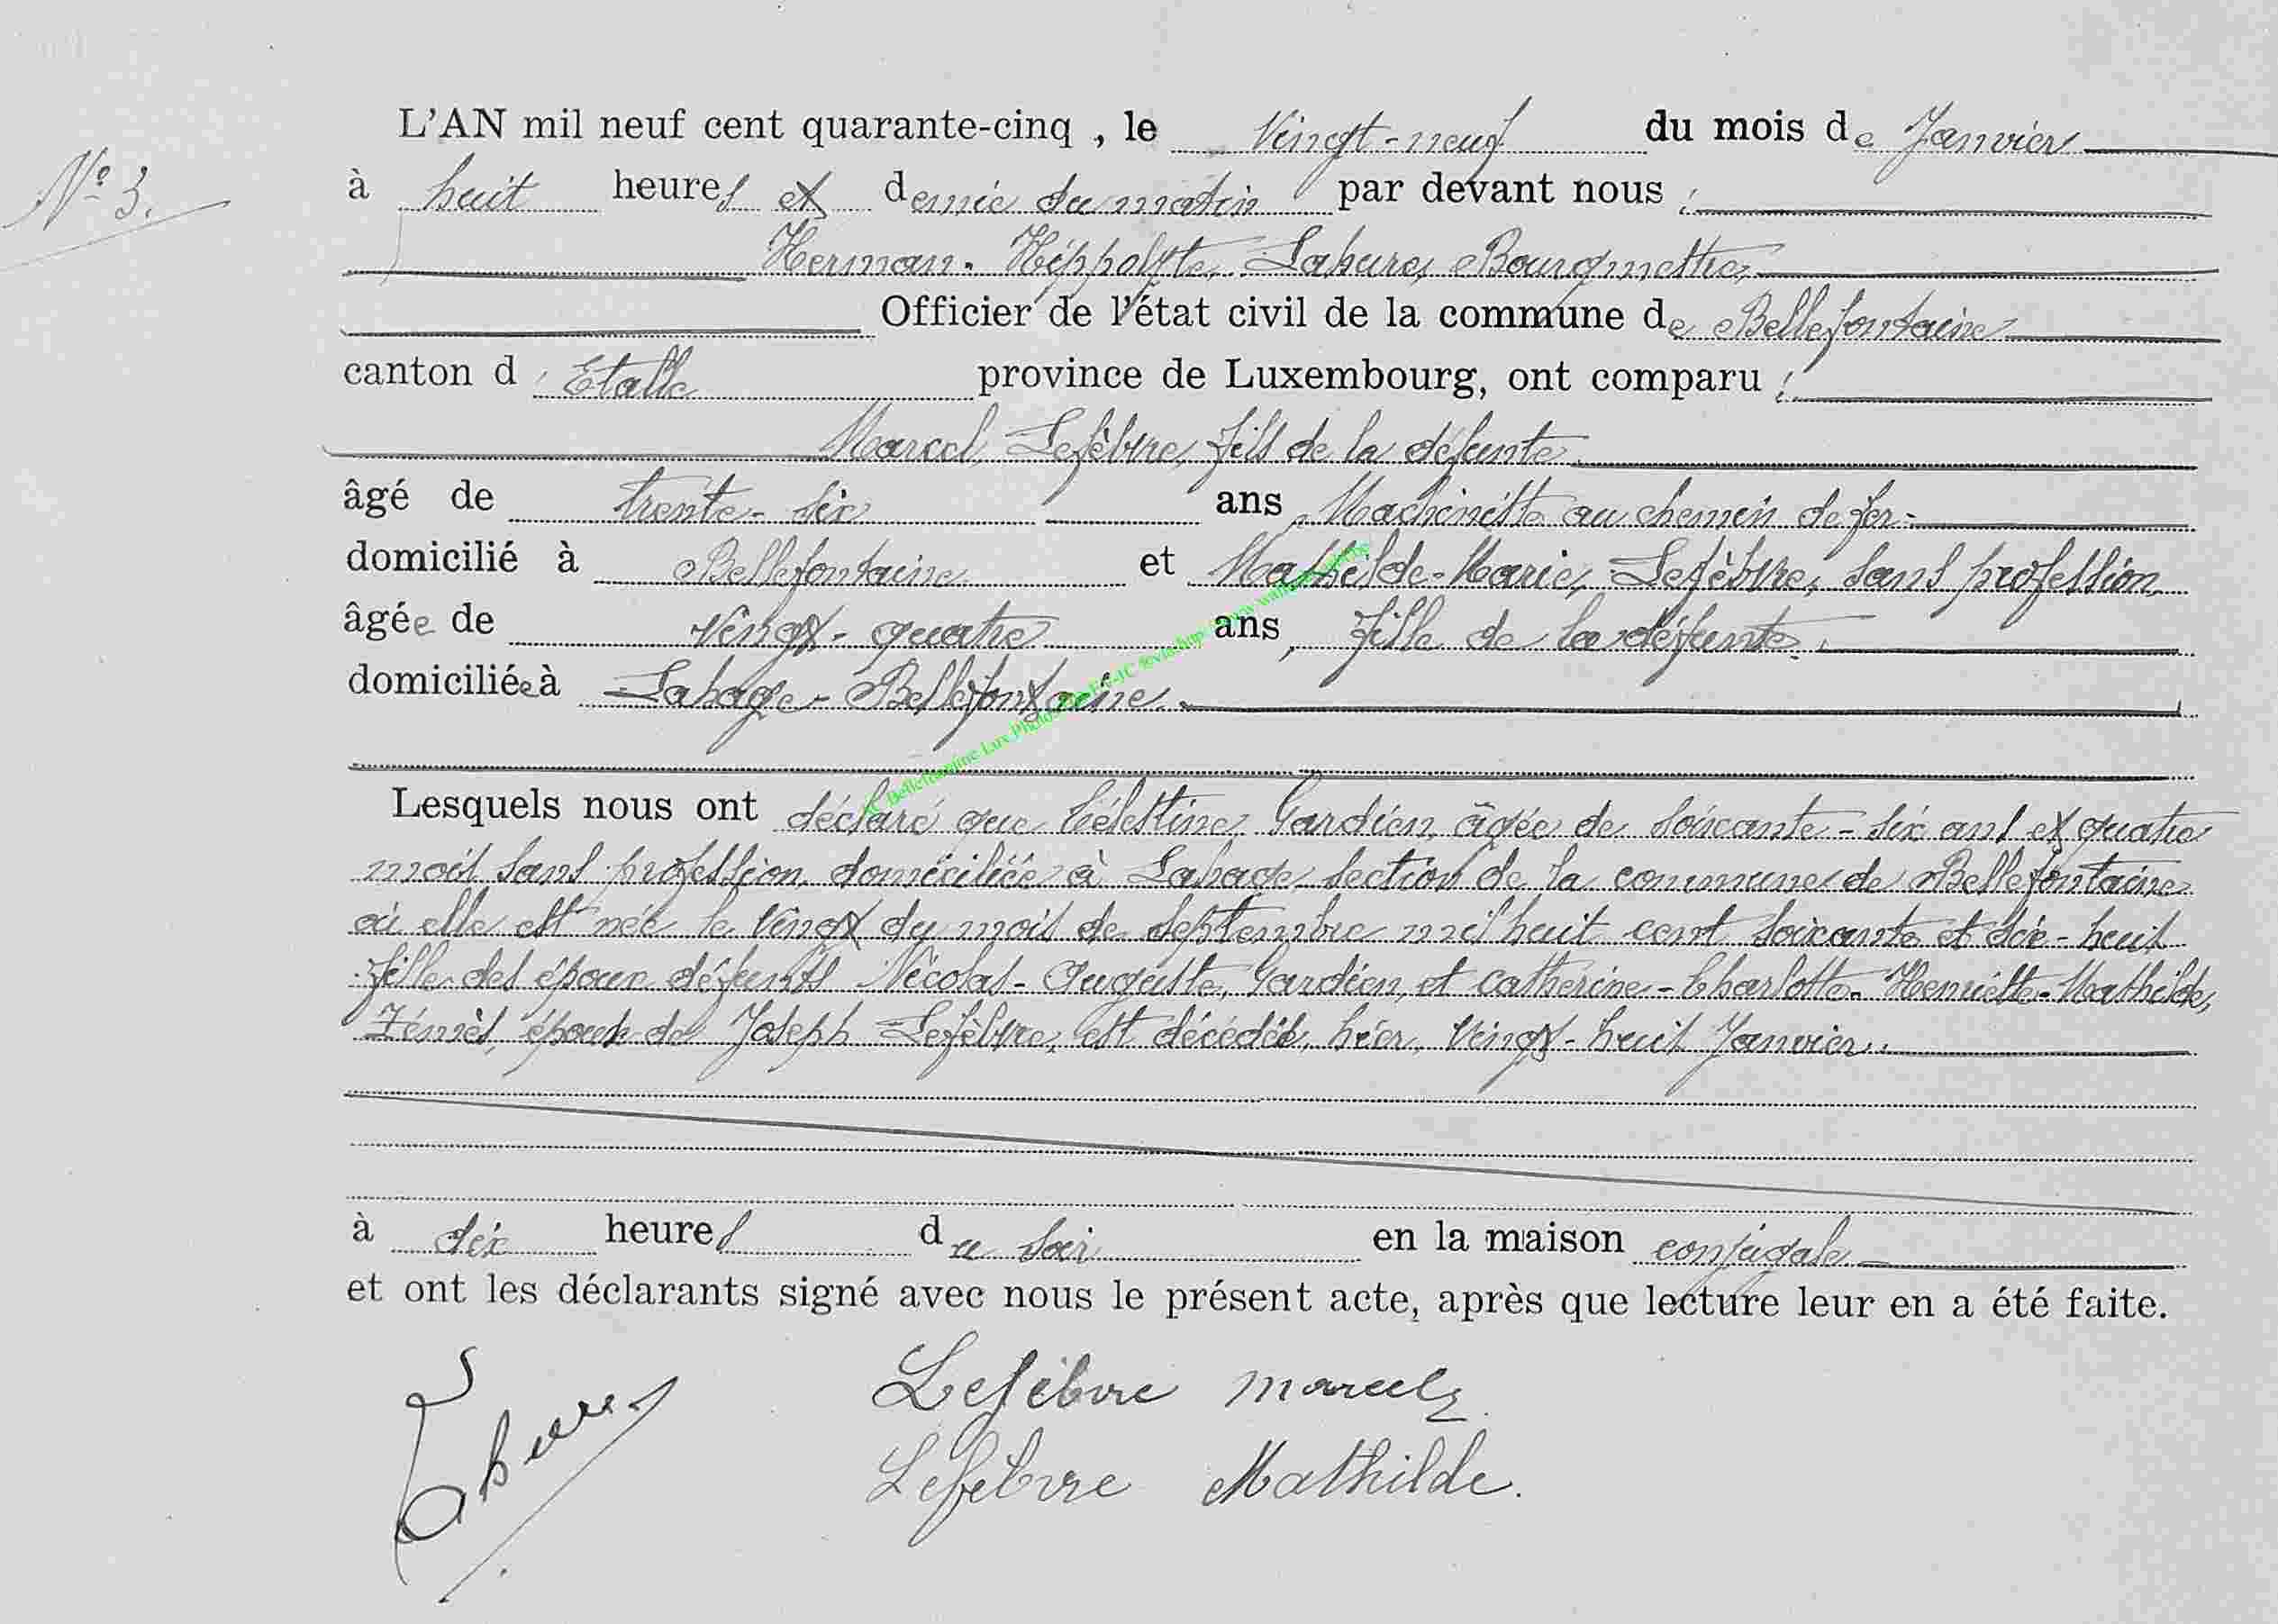 L'AN mil neuf cent quarante-cinq , le Vingt-neuf du mois de Janvier
N° 3.
à huit heures et demie du matin par devant nous :
Herman-Hippolyte, Lahure, Bourgmestre,
Officier de l'état civil de la commune de Bellefontaine
canton d'Etalle province de Luxembourg, ont comparu :
Marcel, Lefèbvre, fils de la défunte
âgé de trente-six ans, Machiniste au chemin de fer-
domicilié à Bellefontaine et Mathilde-Marie, Lefèbvre, sans profession
âgée de Vingt-quatre ans, fille de la défunte.
domiciliée à Lahage-Bellefontaine.
Lesquels nous ont déclaré que Célestine, Gardien, âgée de soixante-six ans et quatre
mois sans profession, domiciliée à Lahage, section de la commune de Bellefontaine
où elle est née le Vingt du mois de septembre mil huit cent soixante et dix-huit
fille des époux défunts Nicolas-Auguste, Gardien, et Catherine-Charlotte-Henriette-Mathilde,
épouse de Joseph Lefèbvre, est décédée, hier, Vingt-huit Janvier.
à dix heures du soir en la maison conjugale
et ont les déclarants signé avec nous le présent acte, après que lecture leur en a été faite.
Lahure
Lefèbvre Marcel
Lefebvre Mathilde.